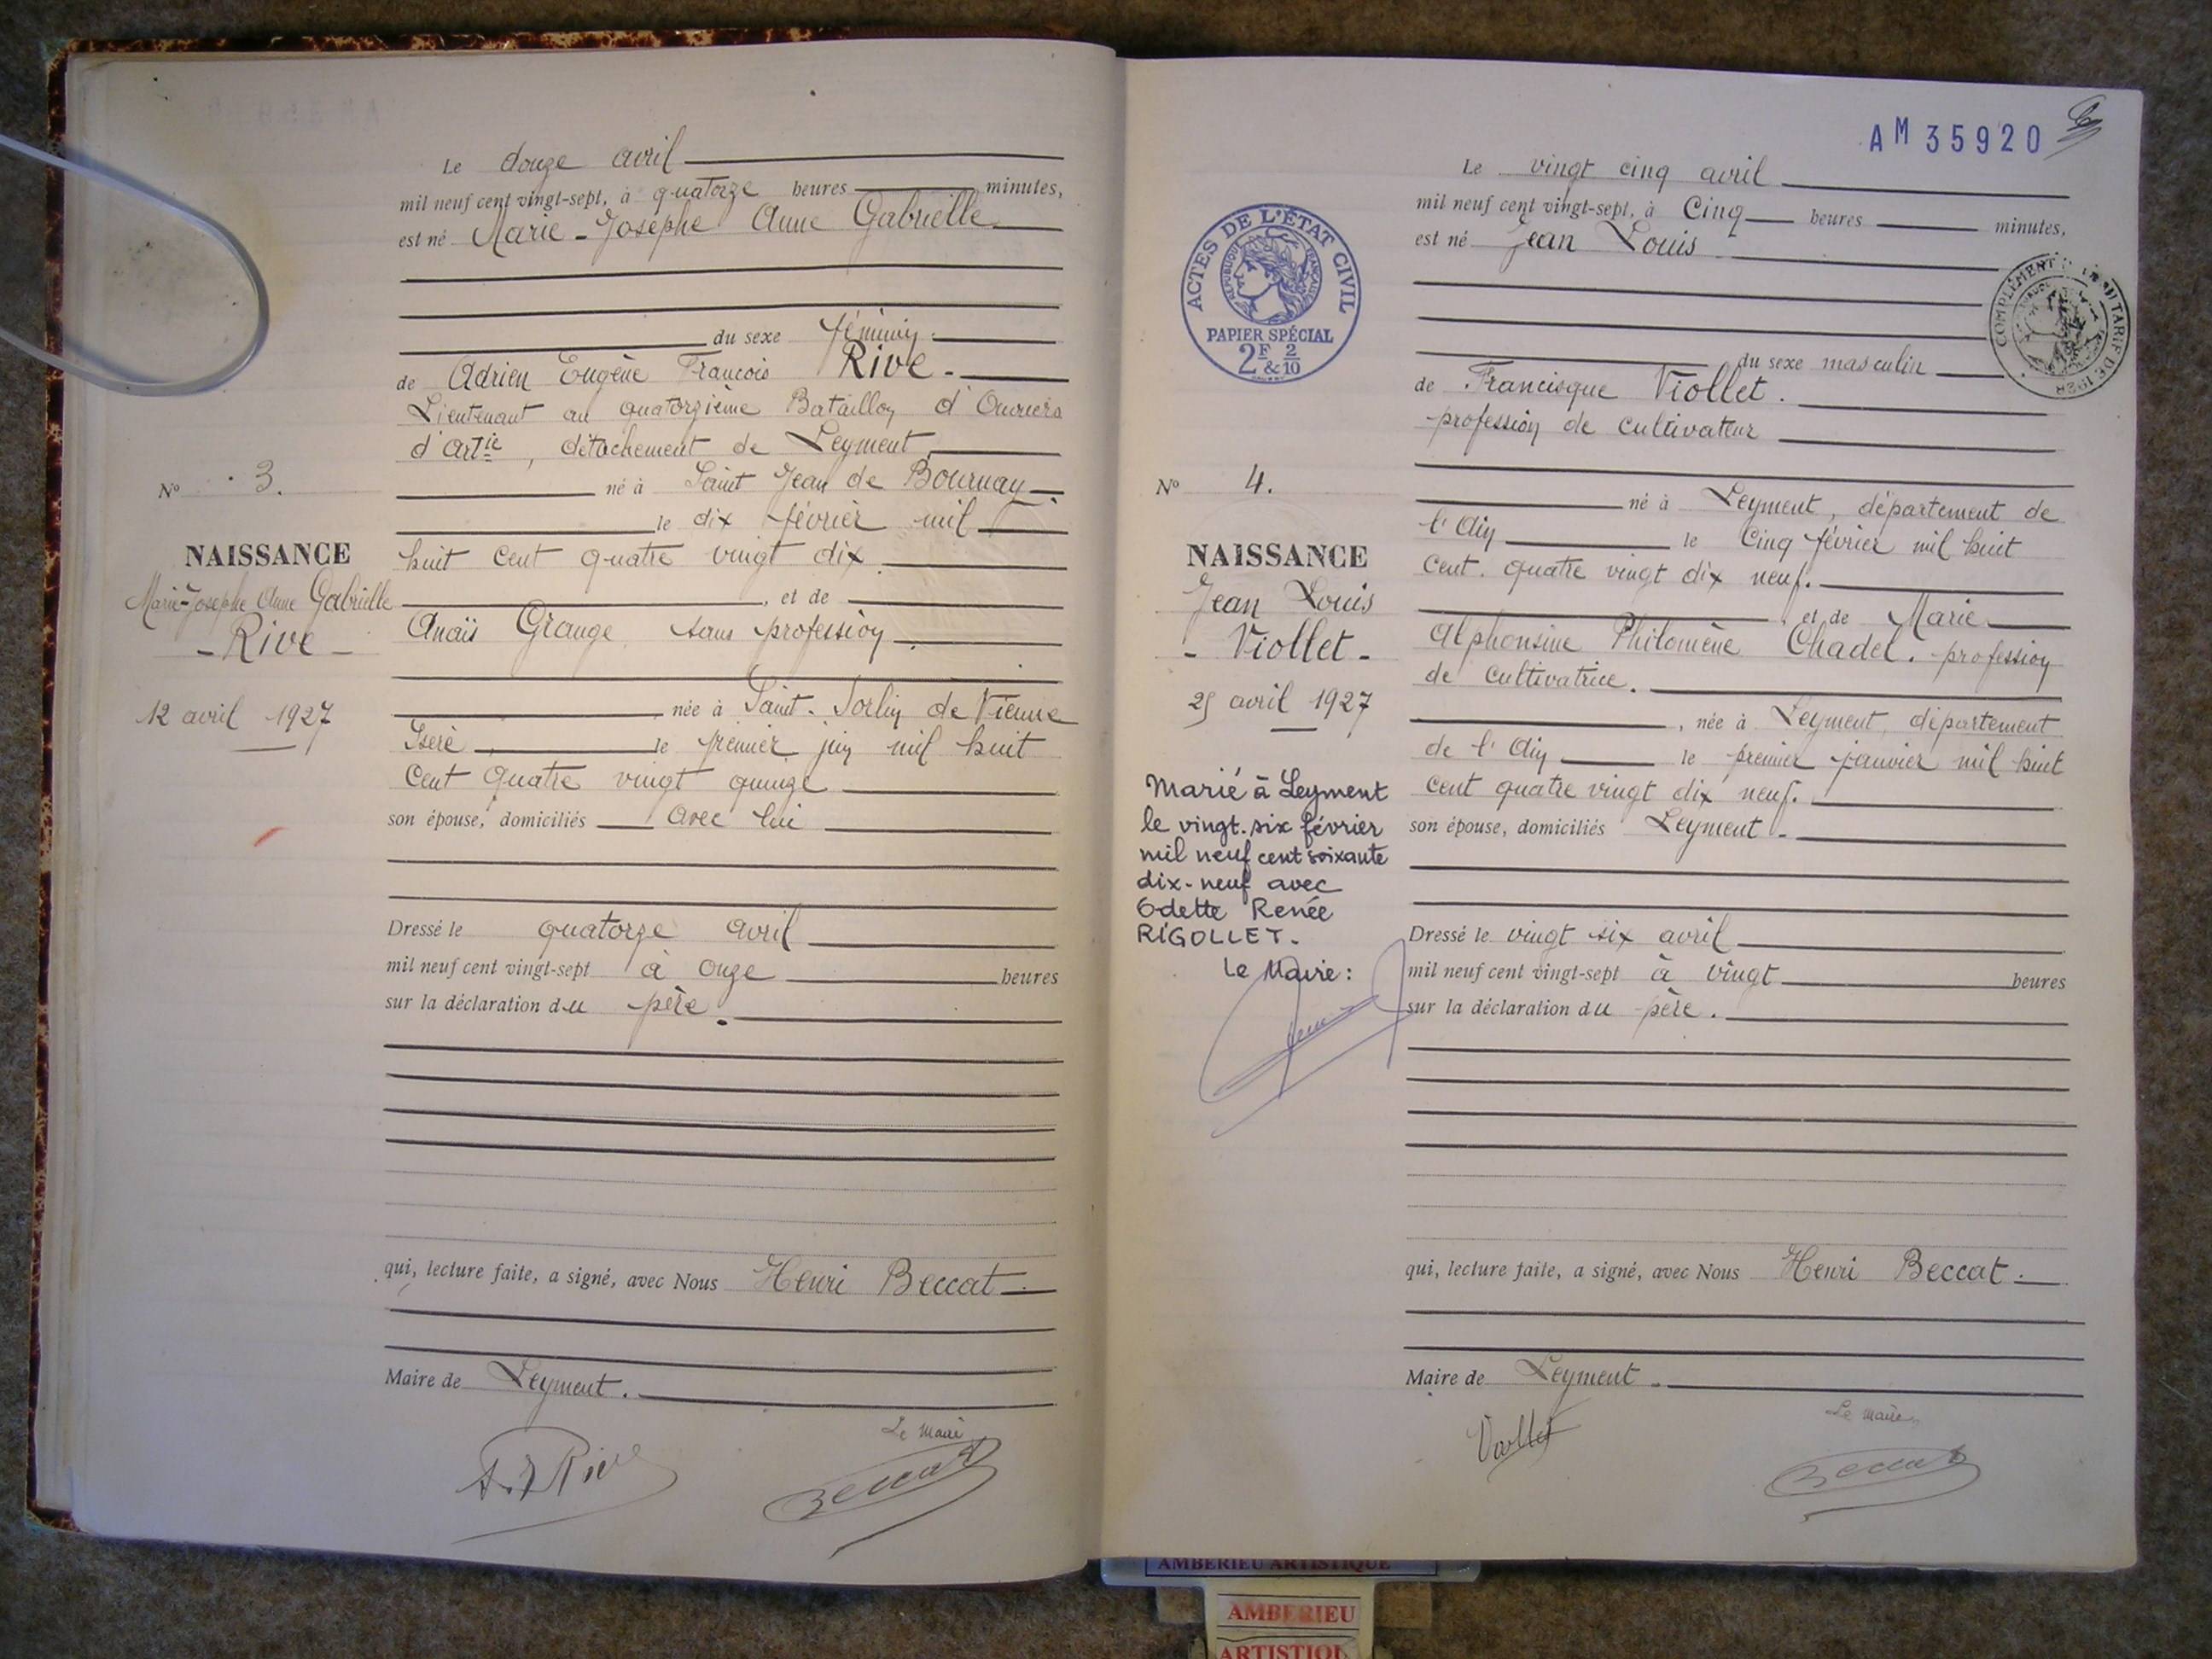 Le douze avril
mil neuf cent vingt-sept, à quatorze heures minutes,
est né Marie-Josèphe Anne Gabrielle
du sexe féminin.
de Adrien Eugène François Rive.
Lieutenant au quatorzième Bataillon d'Ouvriers
d'Artie, détachement de Leyment
né à Saint Jean de Bournay
le dix février mil
huit cent quatre vingt dix
, et de
Anaïs Grange sans profession
née à Saint-Sorlin de Vienne
Isère le premier juin mil huit
cent quatre vingt quinze
son épouse, domiciliés avec lui
Dressé le quatorze avril
mil neuf cent vingt-sept à onze heures
sur la déclaration du père.
qui, lecture faite, a signé, avec Nous Henri Beccat
Maire de Leyment.
Le Maire
Beccat
No 3.
NAISSANCE
Marie-Josèphe Anne Gabrielle
- Rive -
12 avril 1927
AM 35920
Le vingt cinq avril
mil neuf cent vingt-sept, à Cinq heures minutes,
est né Jean Louis
du sexe masculin
de Francisque Viollet.
profession de cultivateur
né à Leyment, département de
l'Ain le Cinq février mil huit
cent. quatre vingt dix neuf.
, et de Marie
Alphonsine Philomène Chadel. profession
de cultivatrice.
, née à Leyment, département
de l'Ain le premier janvier mil huit
cent quatre vingt dix neuf.
son épouse, domiciliés Leyment.
Dressé le vingt six avril
mil neuf cent vingt-sept à vingt heures
sur la déclaration du père.
qui, lecture faite, a signé, avec Nous Henri Beccat.
Maire de Leyment.
Le Maire
Viollet
Beccat
ACTES DE L'ÉTAT CIVIL
RÉPUBLIQUE FRANÇAISE
PAPIER SPÉCIAL
2F & 2/10
COMPLÉMENT TARIF DE 1926
No 4.
NAISSANCE
Jean Louis
- Viollet -
25 avril 1927
Marié à Leyment
le vingt-six février
mil neuf cent soixante
dix-neuf avec
Odette Renée
RIGOLLET.
Le Maire :
AMBERIEU ARTISTIQUE
AMBERIEU